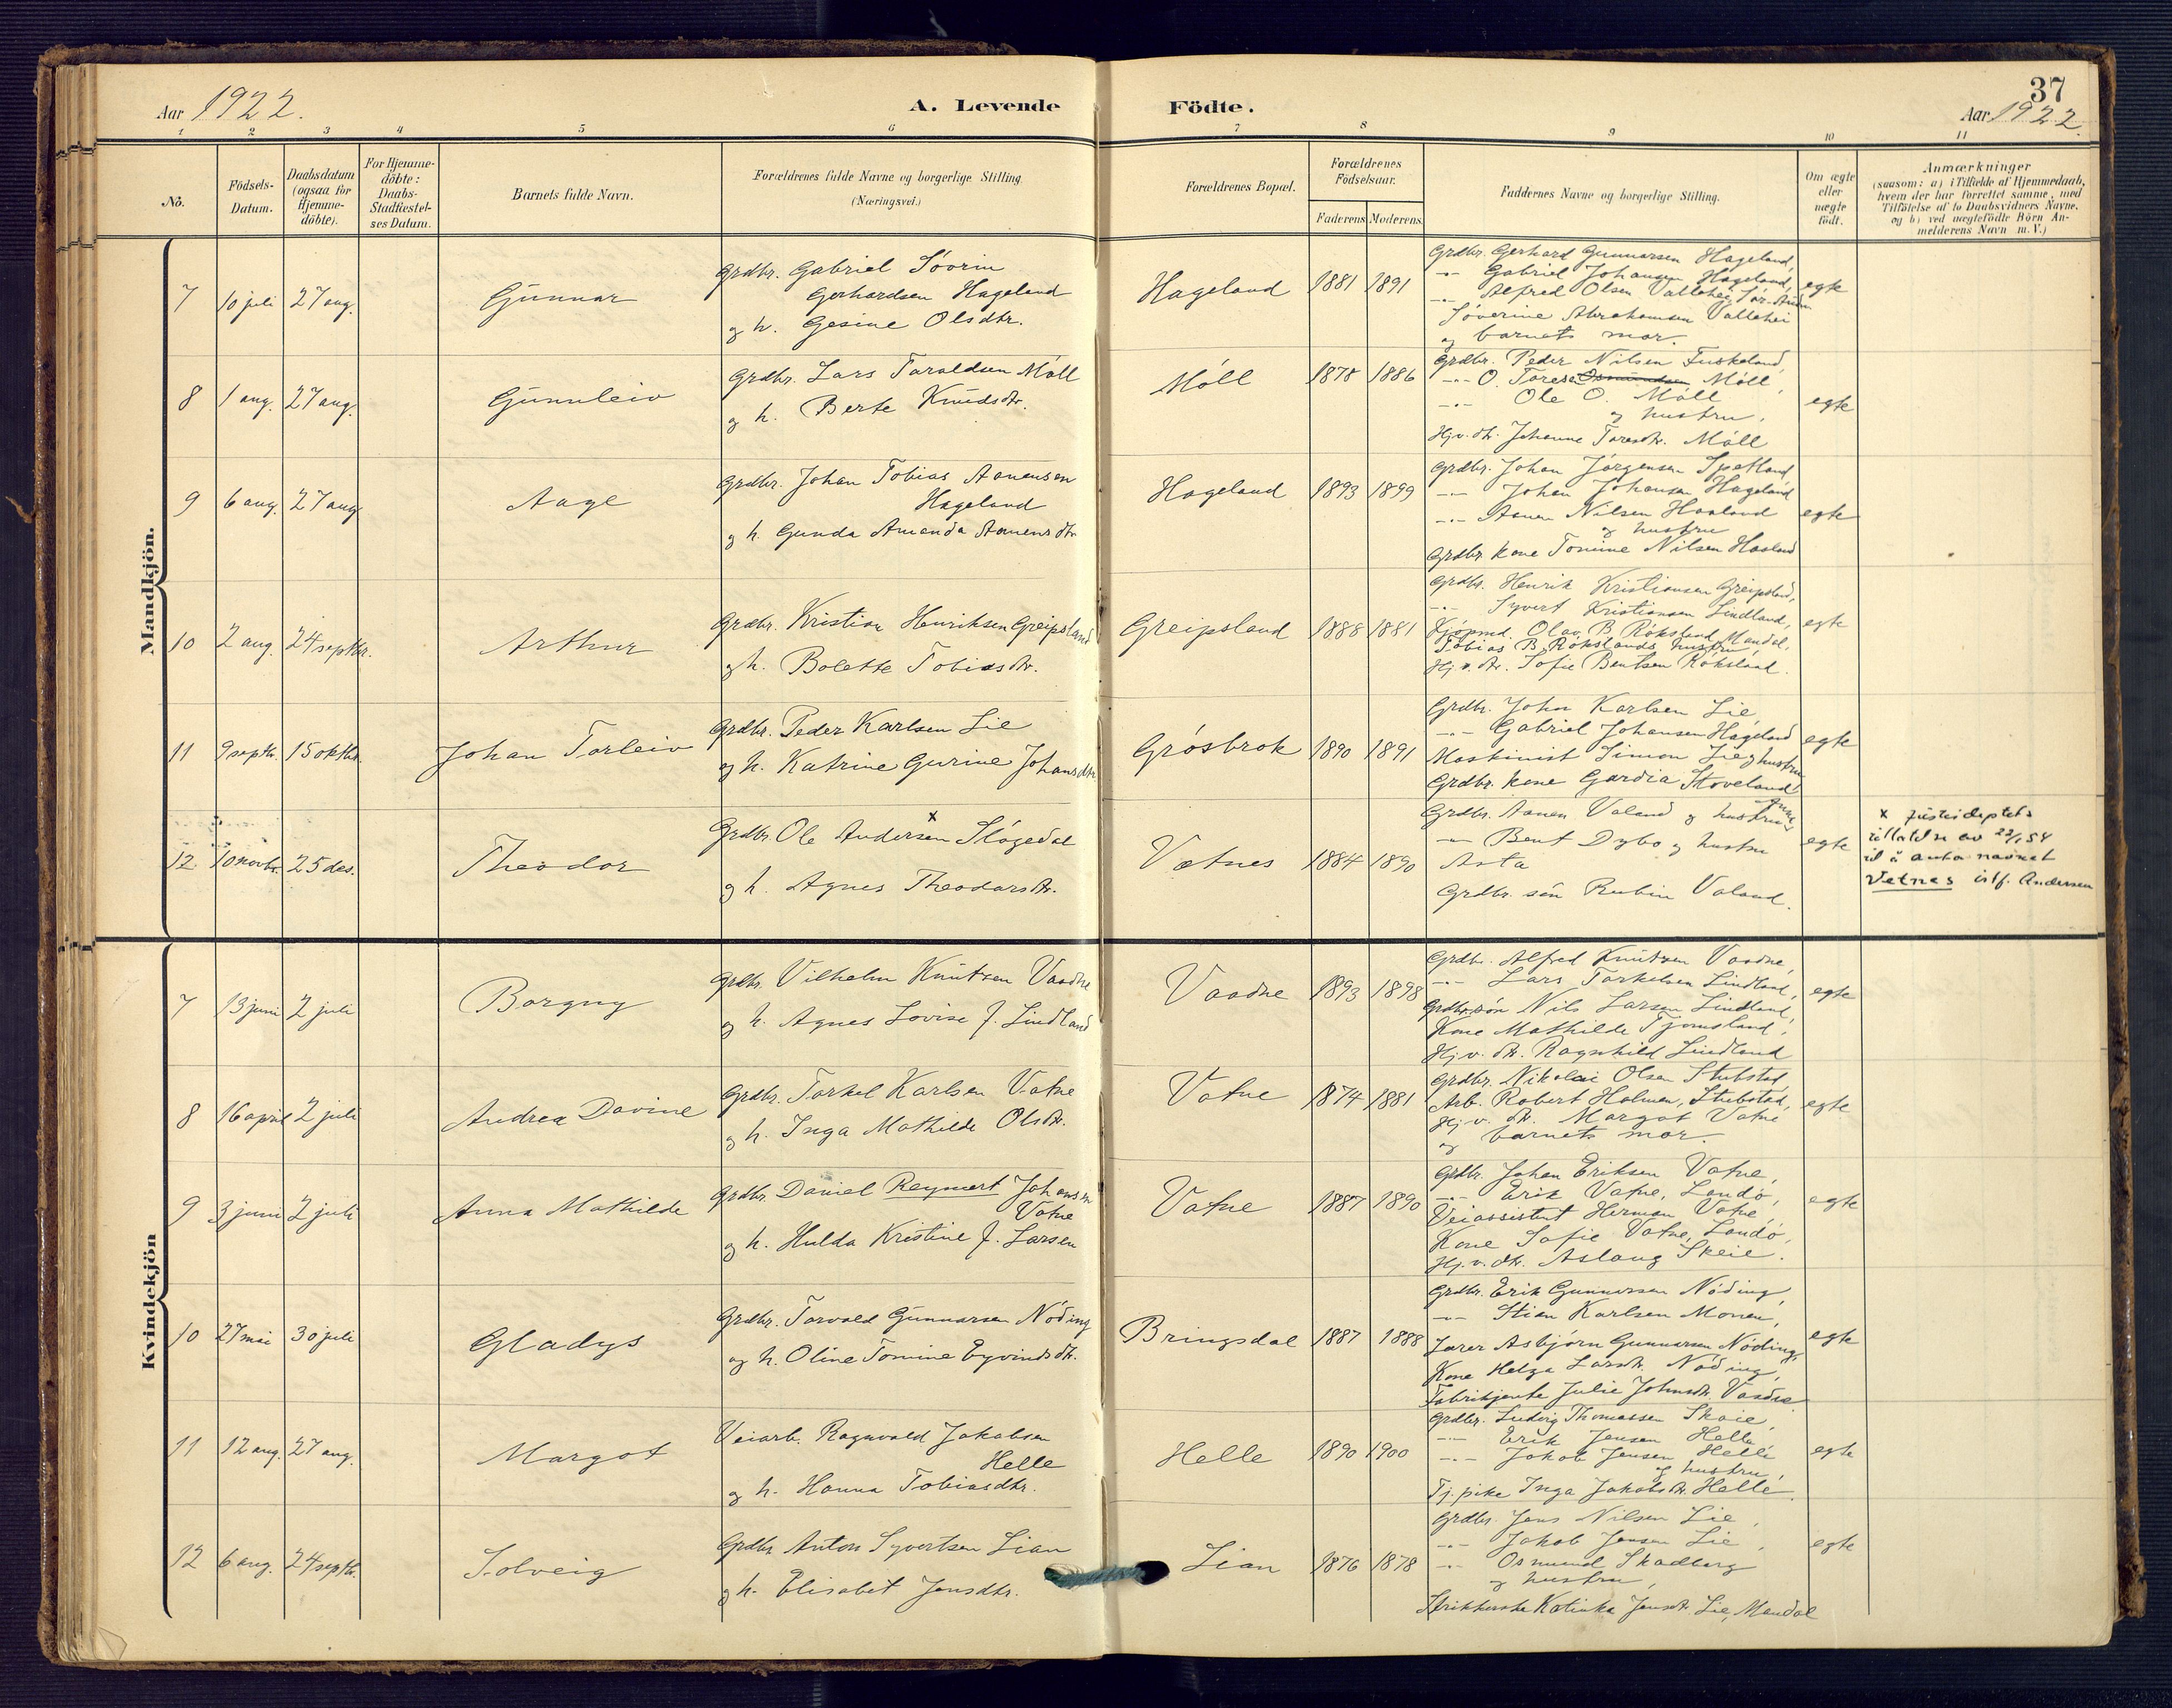 37
Aar 1922.
A. Levende
Födte.
Aar 1922
1 2 3 4 5 6 7 8 9 10 11
No.
Födsels-
Datum.
Daabsdatum
(ogsaa for
Hjemme-
döbte).
For Hjemme-
döbte:
Daabs-
Stadfæstel-
ses Datum.
Barnets fulde Navn.
Forældrenes fulde Navne og borgerlige Stilling
(Næringsvei.)
Forældrenes Bopæl.
Forældrenes
Födselsaar.
Faderens
Moderens
Faddernes Navne og borgerlige Stilling.
Om ægte
eller
uægte
födt.
Anmærkninger
(saasom: a) i Tilfælde af Hjemmedaab,
hvem der har forrettet samme, med
Tilföielse af to Daabsvidners Navne.
og b) ved uægtefödte Börn An-
melderens Navn m. V.)
Mandkjön.
7 10 juli 27 aug. Gunnar
Grdbr. Gabriel Sövrin
Gerhardsen Hageland
og h. Gesine Olsdtr.
Hageland 1881 1891
Grdbr. Gerhard Gunnarsen Hageland,
-"- Gabriel Johansen Hageland,
-"- Alfred Olsen Vallehei, Sör-Audn.
Söverine Abrahamsen Vallehei
og barnets mor.
egte
8 1 aug. 27 aug. Gunnleiv
Grdbr. Lars Taraldsen Möll
og h. Berte Knudsdtr.
Möll 1878 1886
Grdbr. Peder Nilsen Fuskeland,
-"- O. Torese Möll,
-"- Ole O. Möll
og hustru,
Hjv. dtr. Johanne Toresdtr. Möll
egte
9 6 aug. 27 aug Aage
Grdbr. Johan Tobias Aanensen
Hageland
og h. Gunda Amanda Aanensdtr
Hageland 1893 1899
Grdbr. Johan Jörgensen Spetland
-"- Johan Johansen Hageland
-"- Aanen Nilsen Haaland
og hustru
Grdbr. kone Tomine Nilsen Haaland
egte
10 2 aug. 24 septbr. Arthur
Grdbr. Kristian Henriksen Greipsland
og h. Bolette Tobiasdtr.
Greipsland 1888 1881
Grdbr. Henrik Kristiansen Greipsland,
-"- Syvert Kristiansen Lindland,
Kjöpmd. Olav B. Röksland, Mandal,
Tobias B. Rökslands hustru,
Hj.v. dtr. Sofie Bentsen Röksland.
egte
11 9 septbr. 15 oktbr. Johan Torleiv
Grdbr. Peder Karlsen Lie
og h. Katrine Gurine Johansdtr
Grösbrok 1890 1891
Grdbr. John Karlsen Lie,
-"- Gabriel Johansen Hageland
Maskinist Simon Lie og hustru
Grdbr. kone Gardia Stoveland
egte
12. 10 novbr. 25 des. Theodor
Grdbr. Ole Andersen x Slögedal
og h. Agnes Theodorsdtr.
Vatnes 1884 1890
Grdbr. Aanen Valand og hustru Anne,
-"- Bent Dybo og hustru
Asta
Grdbr. sön Rubin Valand.
egte
x Justisdeptets
tillatelse av 22/1 54
til å anta navnet
Vetnes istf. Andersen
Kvindekjön
7 13 juni 2 juli Borgny
Grdbr. Vilhelm Knutsen Vaadne
og h. Agnes Lovise f. Lindland
Vaadne 1893 1898
Grdbr. Alfred Knutsen Vaadne,
-"- Lars Torkelsen Lindland,
Grdbr.sön Nils Larsen Lindland,
Kone Mathilde Tjomsland,
Hj.v. dtr. Ragnhild Lindland
egte
8 16 april 2 juli Andrea Davine
Grdbr. Torkel Karlsen Vatne
og h. Inga Mathilde Olsdtr.
Vatne 1874 1881
Grdbr. Nikolai Olsen Stubstad,
Arb. Robert Holmen, Stubstad,
Hj.v. dtr. Margot Vatne
og barnets mor.
egte
9 3 juni 2 juli Anna Mathilde
Grdbr. Daniel Reymert Johansen
Vatne
og h. Hulda Kristine f. Larsen
Vatne 1887 1890
Grdbr. Johan Eriksen Vatne,
-"- Erik Vatne, Landö,
Veiassistent Herman Vatne,
Kone Sofie Vatne, Landö,
Hj.v. dtr. Aslaug Skeie.
egte
10 27 mai 30 juli Gladys
Grdbr. Torvald Gunnarsen Nöding
og h. Oline Tomine Eyvindsdtr.
Bringsdal 1887 1888
Grdbr. Erik Gunnarsen Nöding,
-"- Stian Karlsen Monen,
Lærer Asbjörn Gunnarsen Nöding,
Kone Helga Larsdtr. Nöding,
Fabrikjente Julie Johnsdtr. Vaadne
egte
11 12 aug. 27 aug. Margot
Veiarb. Ragnvald Jakobsen
Helle
og h. Hanna Tobiasdtr.
Helle 1890 1900
Grdbr. Ludvig Thomassen Skoie,
-"- Erik Jensen Helle,
-"- Jakob Jensen Helle
og hustru,
Tj. pike Inga Jakobsdtr. Helle.
egte
12 6 aug. 24 septbr. Solveig
Grdbr. Anton Syvertsen Lian
og h. Elisabet Jensdtr.
Lian 1876 1878
Grdbr. Jens Nilsen Lie,
-"- Jakob Jensen Lie,
-"- Osmund Skadberg
og hustru,
Strikkerske Katinka Jensdtr. Lie, Mandal
egte